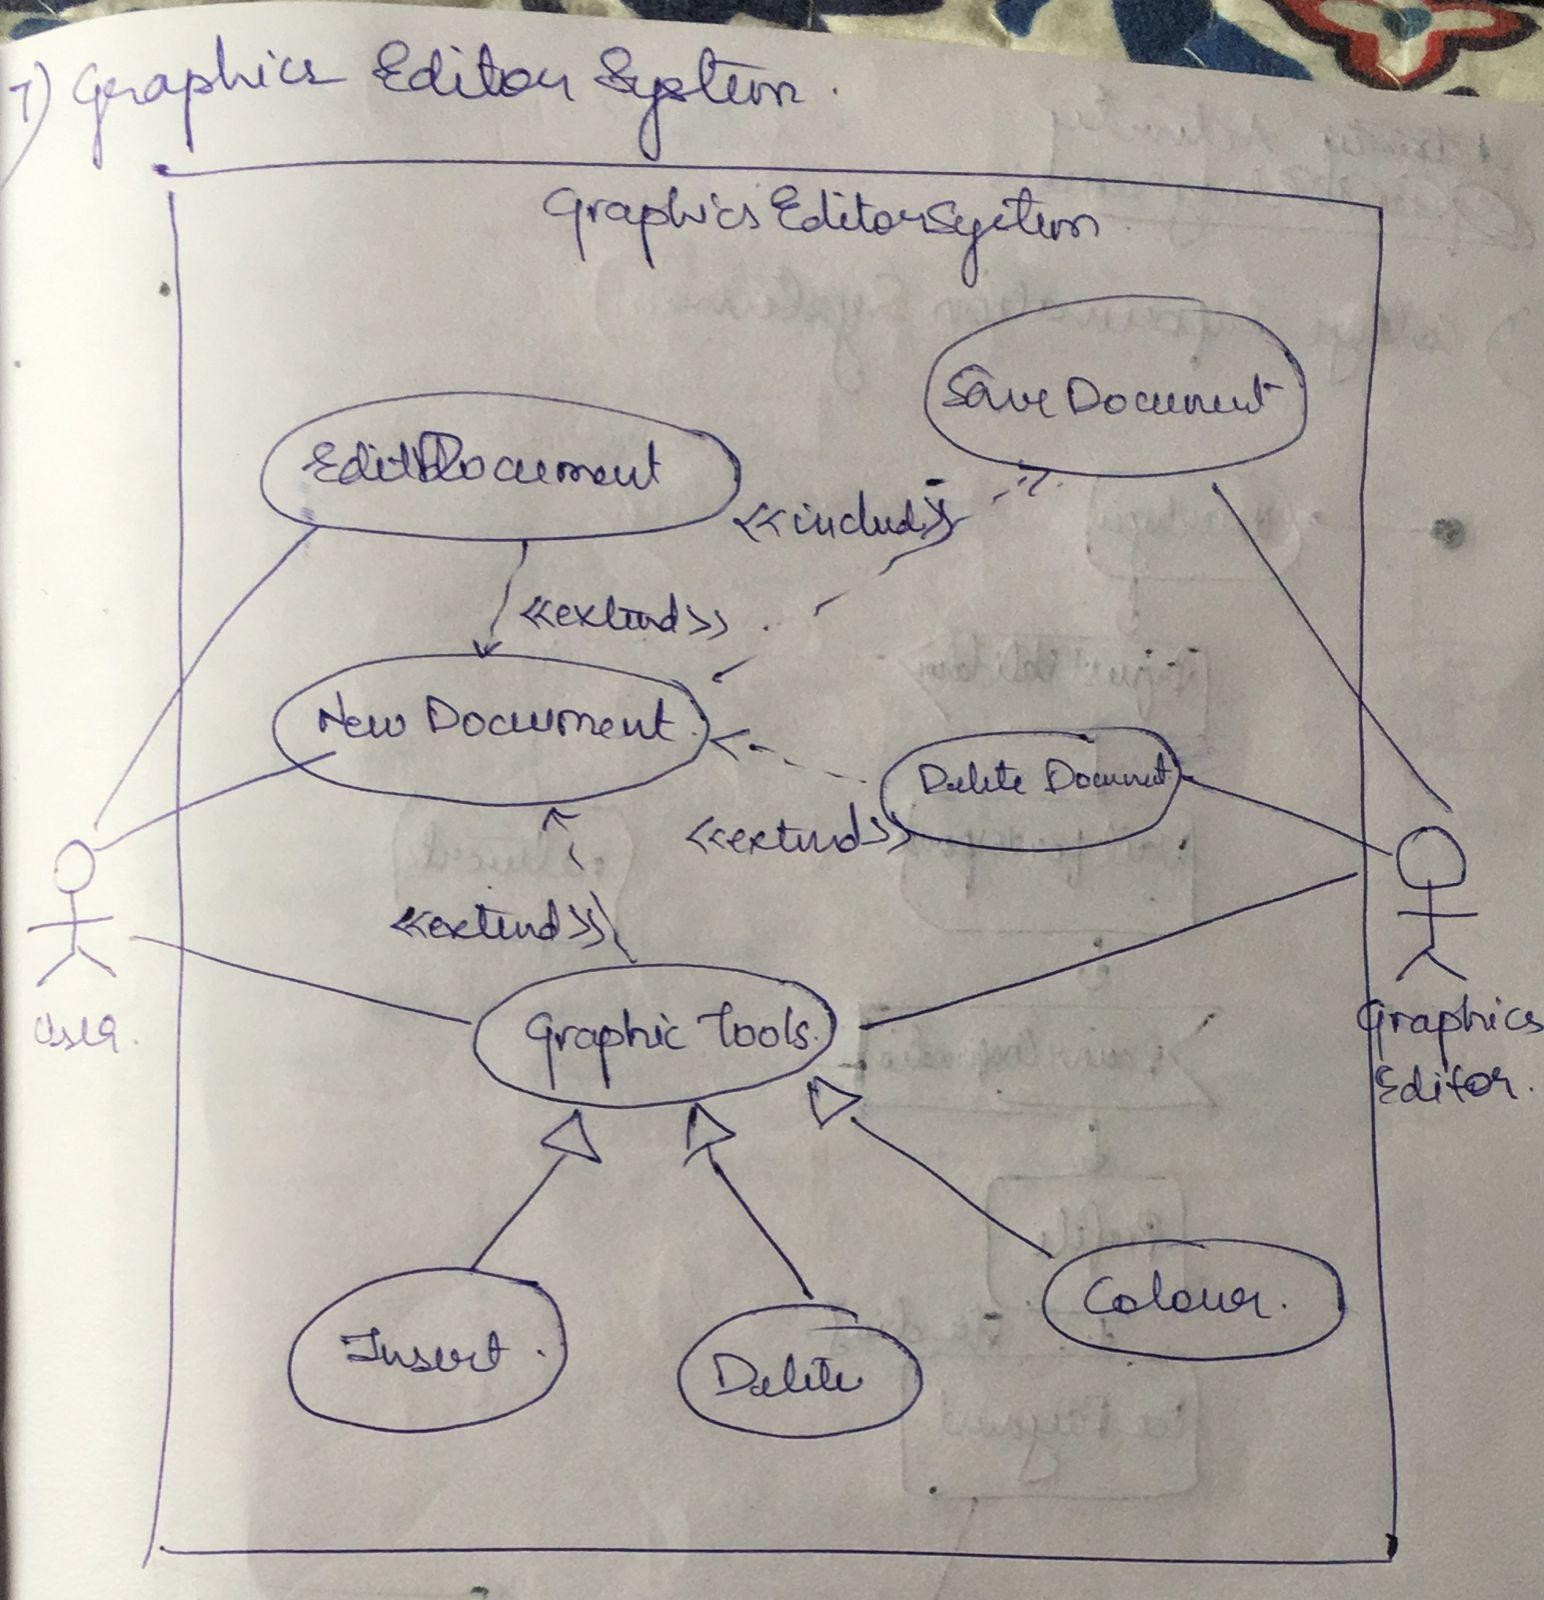 7) Graphics Editor System.
Graphics Editor System
Save Document
Edit Document
<<include>>
<<extend>>
New Document
Delete Document
<<extend>>
<<extend>>
User.
Graphic Tools.
Graphics
Editor.
Colour.
Insert.
Delete